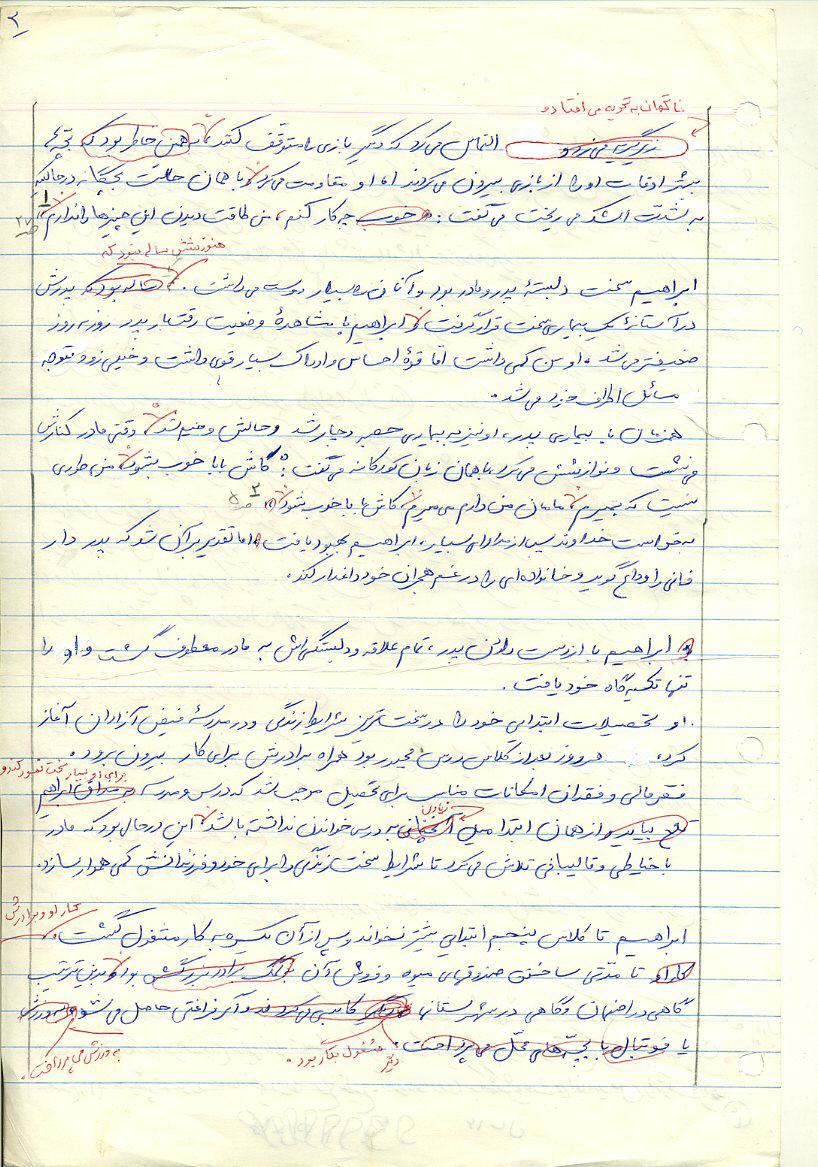 ۲
ناگهان به گریه می‌افتاد و
زیر گریه می‌زد و التماس می‌کرد که دیگر بازی را متوقف کنند، به همین خاطر بود که بچه‌ها
بیشتر اوقات او را از بازی بیرون می‌کردند اما او مقاومت می‌کرد و با همان حالت بچگانه در حالیکه
به شدت اشک می‌ریخت می‌گفت: خوب چه کار کنم، من طاقت دیدن این چیزها را ندارم. ۱
هنوز شش ساله نبود که
ابراهیم سخت دلبستهٔ پدر و مادر بود و آنان را بسیار دوست می‌داشت. ساله بود که پدرش
در آستانهٔ یک بیماری سخت قرار گرفت و ابراهیم با مشاهدهٔ وضعیت رقت‌بار پدر روز به روز
ضعیفتر می‌شد. او سن کمی داشت اما قوهٔ احساس و ادراک بسیار قوی داشت و خیلی زود متوجه
مسائل اطراف خود می‌شد.
همزمان با بیماری پدر، او نیز به بیماری حصبه دچار شد و حالش وخیم شد، وقتی مادر کنارش
می‌نشست و نوازشش می‌کرد با همان زبان کودکانه می‌گفت: کاش بابا خوب بشود، من طوری
نیست که بمیرم، مامان من دارم می‌میرم، کاش بابا خوب شود. ۲
به خواست خداوند پس از مداوای بسیار، ابراهیم بهبود یافت، اما تقدیر بر آن شد که پدر دار
فانی را وداع گوید و خانواده‌ای را در غم هجران خود داغدار کند.
و ابراهیم با از دست دادن پدر، تمام علاقه و دلبستگی‌اش به مادر معطوف گشت و او را
تنها تکیه‌گاه خود یافت.
او تحصیلات ابتدایی خود را در سخت‌ترین شرایط زندگی و در مدرسهٔ فیض آزادان آغاز
کرد، هر روز بعد از کلاس درس مجبور بود همراه برادرش برای کار بیرون برود.
برای او بسیار سخت تصور کند و
فقر مالی و فقدان امکانات مناسب برای تحصیل موجب شد که درس و مدرسه به مذاق ابراهیم
زیادی
تلخ بیاید و از همان ابتدا میل آنچنانی به درس خواندن نداشته باشد، این در حال بود که مادر
با خیاطی و قالیبافی تلاش می‌کرد تا شرایط سخت زندگی را برای خود و فرزندانش کمی هموار سازد.
کار او و برادرش
ابراهیم تا کلاس پنجم ابتدایی بیشتر نخواند و پس از آن یکسره به کار مشغول گشت.
کار او تا مدتی ساختن صندوقهای میوه و فروش آن به کمک برادر بزرگش بود و بدین ترتیب
گاهی در اصفهان و گاهی در شهرستانهای دیگر کاسبی می‌کردند و اگر فراغتی حاصل می‌شد به ورزش
یا فوتبال با بچه‌های محل می‌پرداخت.
دیگر مشغول بکار بود.
به ورزش می‌پرداخت.